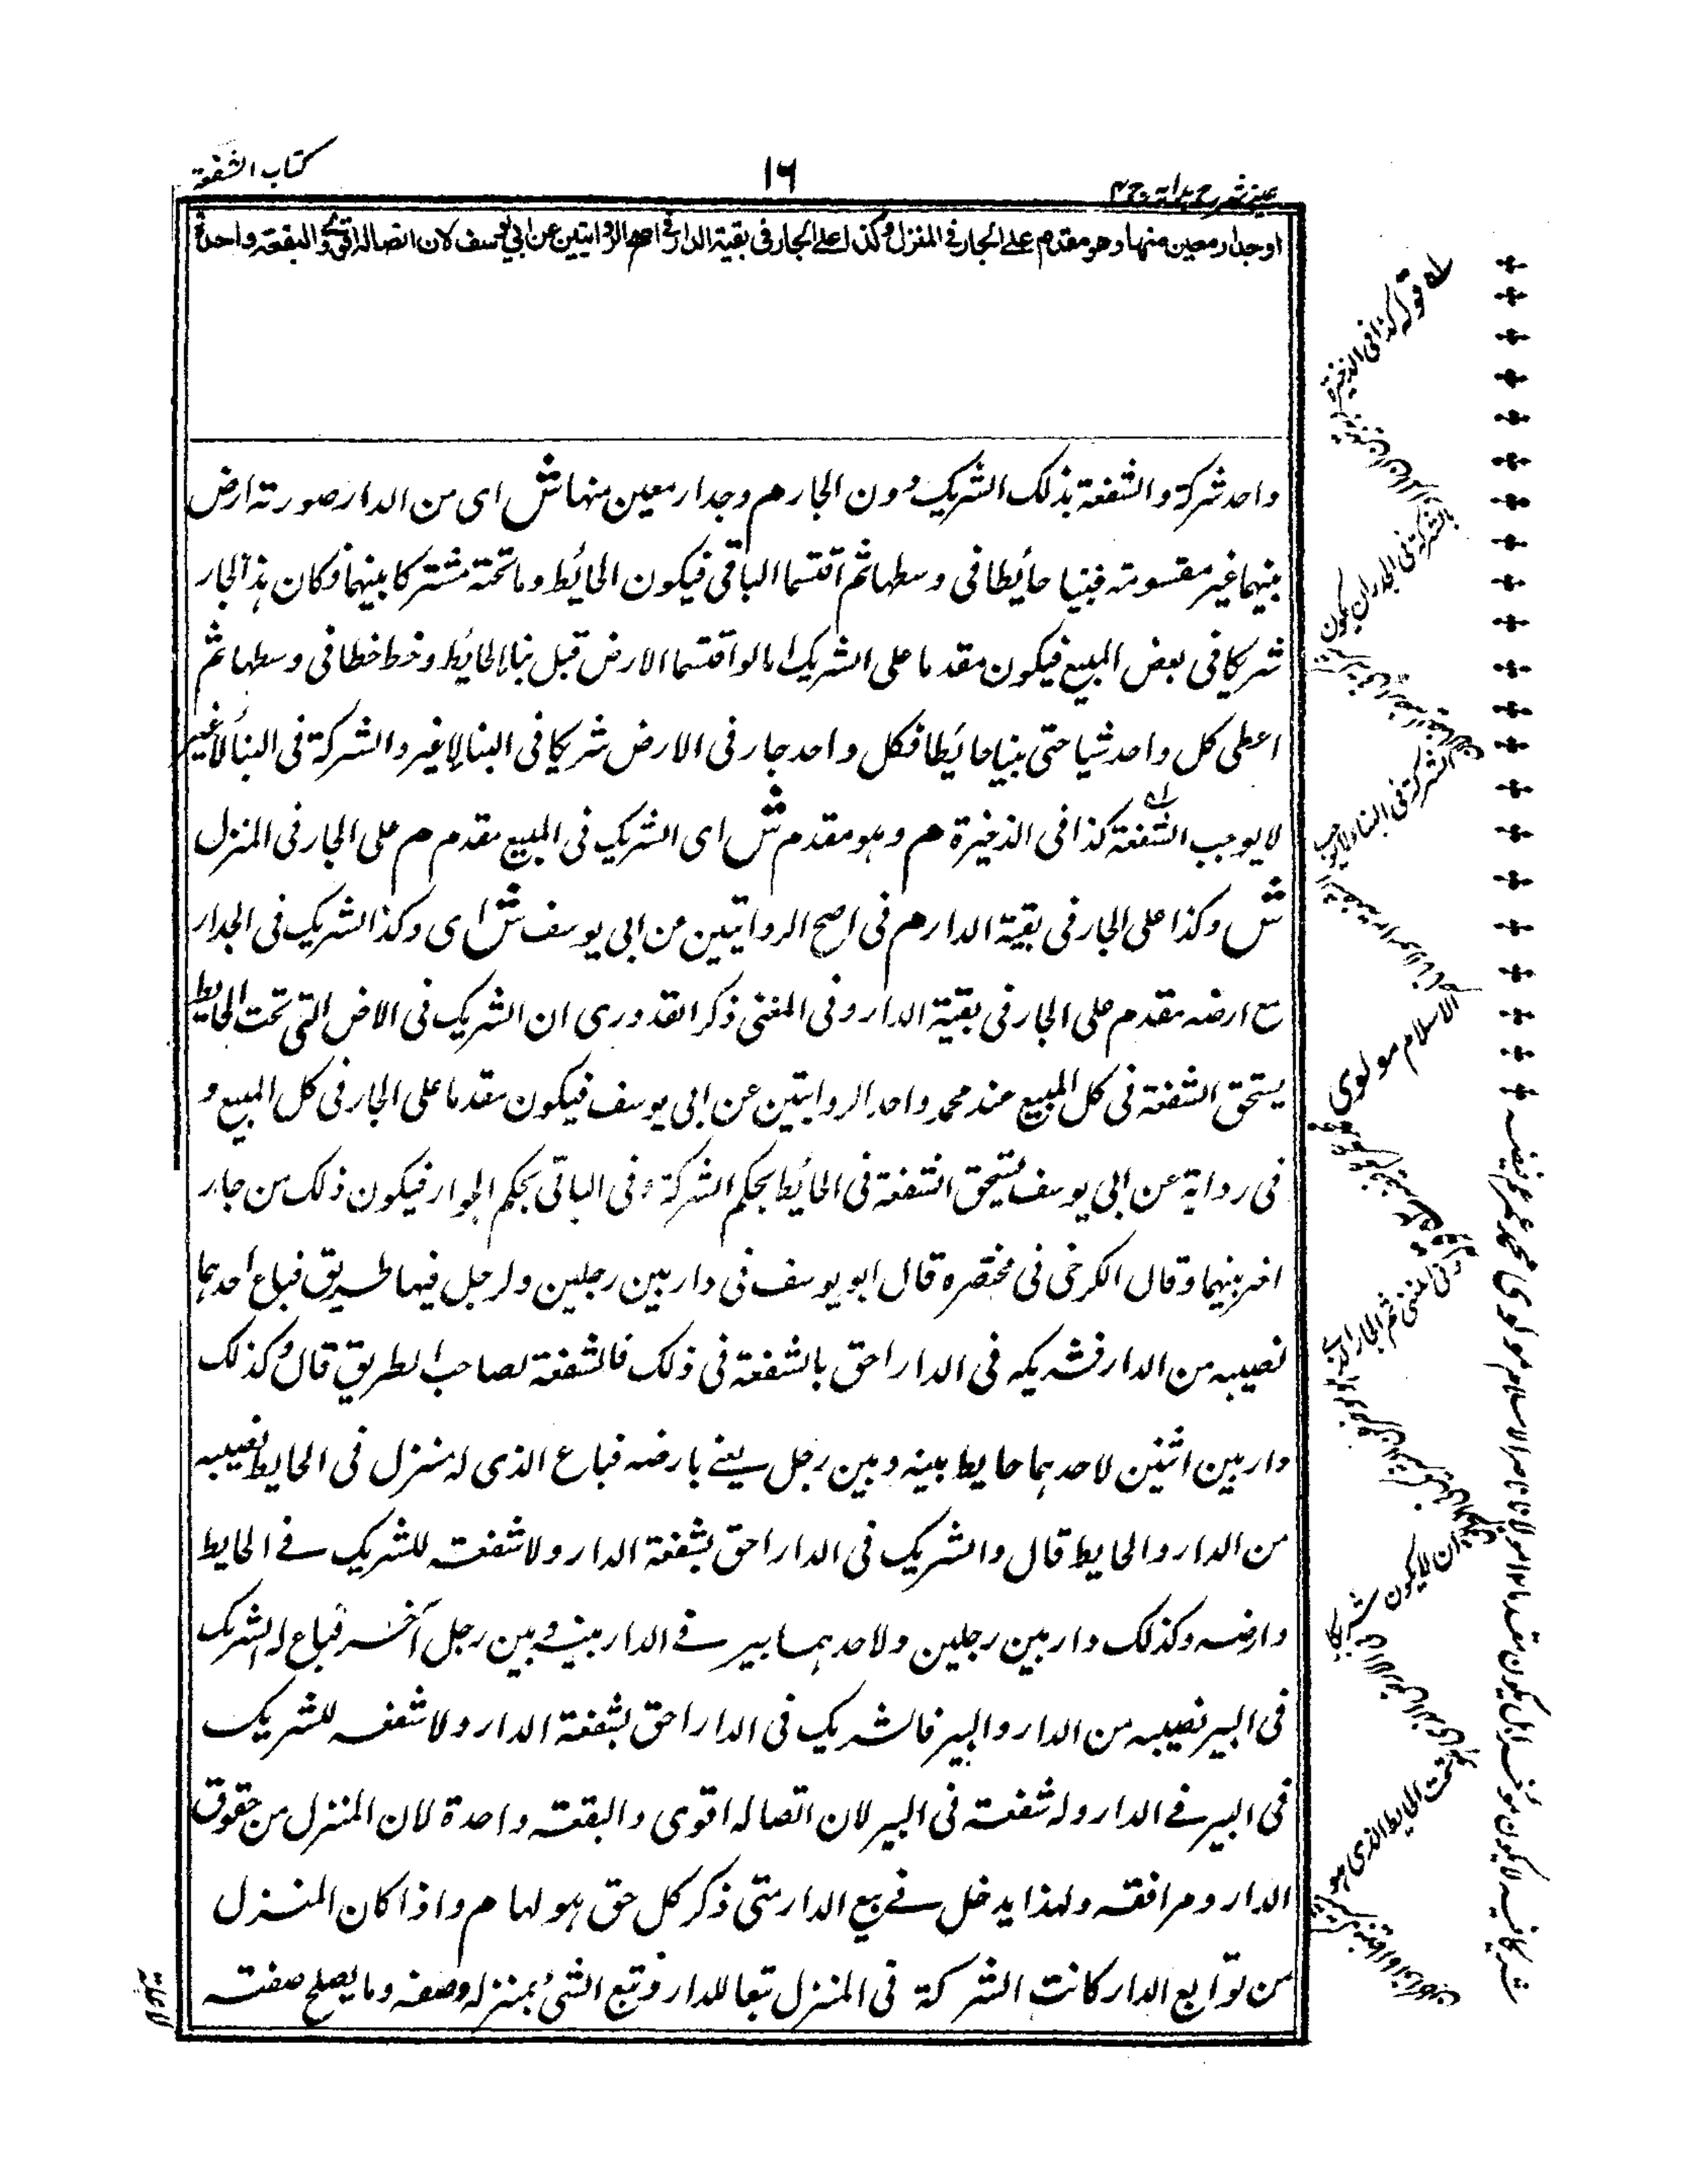 كتاب الشفعة
١٦
عينى شرح هدايه ج ٤
او جدار معين منها وهو مقدم على الجار فى المنزل وكذا على الجار فى بقية الدار فى اصح الروايتين عن ابى يوسف لان اتصاله اقوى والبقعة واحدة
واحد شركة والشفعة بذلك الشريك دون الجار م وجدار معين منها ش اى من الدار صورته ارض
بينهما غير مقسومة فبنيا حائطا فى وسطها ثم اقتسما الباقى فيكون الحائط وما تحته مشتركا بينهما وكان هذا لجار
شريكا فى بعض المبيع فيكون مقدما على الشريك اما لو اقتسما الارض قبل بناء الحائط وخط خطا فى وسطها ثم
اعطى كل واحد شيا حتى بنيا حائطا فكل واحد جار فى الارض شريكا فى البناء لا غير والشركة فى البناء لا غير
لا يوجب الشفعة كذا فى الذخيرة م وهو مقدم ش اى الشريك فى المبيع مقدم م على الجار فى المنزل
ش وكذا على الجار فى بقية الدار م فى اصح الروايتين من ابى يوسف ش اى وكذا الشريك فى الجدار
مع ارضه مقدم على الجار فى بقية الدار وفى المغنى ذكر القدورى ان الشريك فى الارض التى تحت الحايط
يستحق الشفعة فى كل المبيع عند محمد واحد الروايتين عن ابى يوسف فيكون مقدما على الجار فى كل المبيع و
فى رواية عن ابى يوسف يستحق الشفعة فى الحائط بحكم الشركة وفى الباقى بحكم الجوار فيكون ذلك من جار
اخر بينهما وقال الكرخى فى مختصره قال ابو يوسف فى دار بين رجلين ولرجل فيها طريق فباع احدهما
نصيبه من الدار فشريكه فى الدار احق بالشفعة فى ذلك فالشفعة لصاحب الطريق قال وكذلك
دار بين اثنين لاحدهما حايط بينه وبين رجل يعنے بارضه فباع الذى له منزل فى الحايط نصيبه
من الدار والحايط قال والشريك فى الدار احق بشفعة الدار ولا شفعة للشريك فے الحايط
وارضه وكذلك دار بين رجلين ولاحدهما بير فے الدار بينه وبين رجل آخر فباع له الشريك
فى البير نصيبه من الدار والبير فالشريك فى الدار احق بشفعة الدار ولا شفعه للشريك
فى البير فے الدار وله شفعة فى البير لان اتصاله اقوى والبقعة واحدة لان المنزل من حقوق
الدار ومرافقه ولهذا يدخل فے بيع الدار متى ذكر كل حق هو لها م واذا كان المنزل
من توابع الدار كانت الشركة فى المنزل تبعا للدار وتبع الشئ بمنزله وصفه وما يصلح صفته
له قوله كذا فى الذخيرة
الشركة فى الجدران يكون
الشركة فى البناء لا يوجب
الاسلام مولوى
وفى المغنى ثم الجار الذى
ان لا يكون شريكا
تحت الحايط الذى